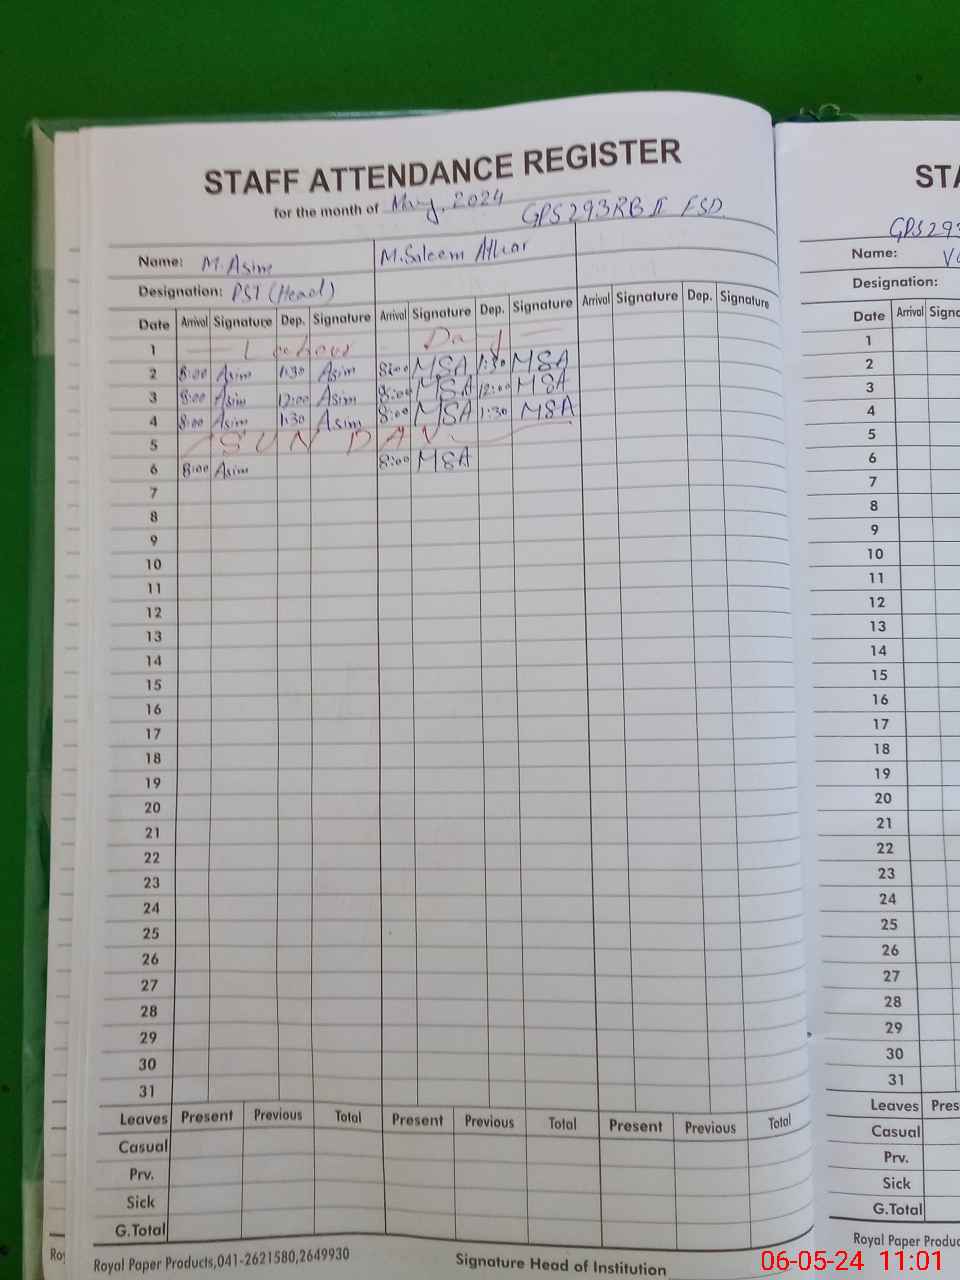 STAFF ATTENDANCE REGISTER
for the month of May, 2024 GPS 293RB II FSD.
Name: M.Asim M.Saleem Athar
Designation: PST (Head)
Date Arrival Signature Dep. Signature Arrival Signature Dep. Signature Arrival Signature Dep. Signature
1 Labour Day
2 8:00 Asim 1:30 Asim 8:00 MSA 1:30 MSA
3 8:00 Asim 12:00 Asim 8:00 MSA 12:00 MSA
4 8:00 Asim 1:30 Asim 8:00 MSA 1:30 MSA
5 SUNDAY
6 8:00 Asim 8:00 MSA
7
8
9
10
11
12
13
14
15
16
17
18
19
20
21
22
23
24
25
26
27
28
29
30
31
Leaves Present Previous Total Present Previous Total Present Previous Total
Casual
Prv.
Sick
G.Total
Royal Paper Products,041-2621580,2649930 Signature Head of Institution
GPS 293
Name:
Designation:
Date Arrival
1
2
3
4
5
6
7
8
9
10
11
12
13
14
15
16
17
18
19
20
21
22
23
24
25
26
27
28
29
30
31
Leaves
Casual
Prv.
Sick
G.Total
Royal Paper
06-05-24 11:01